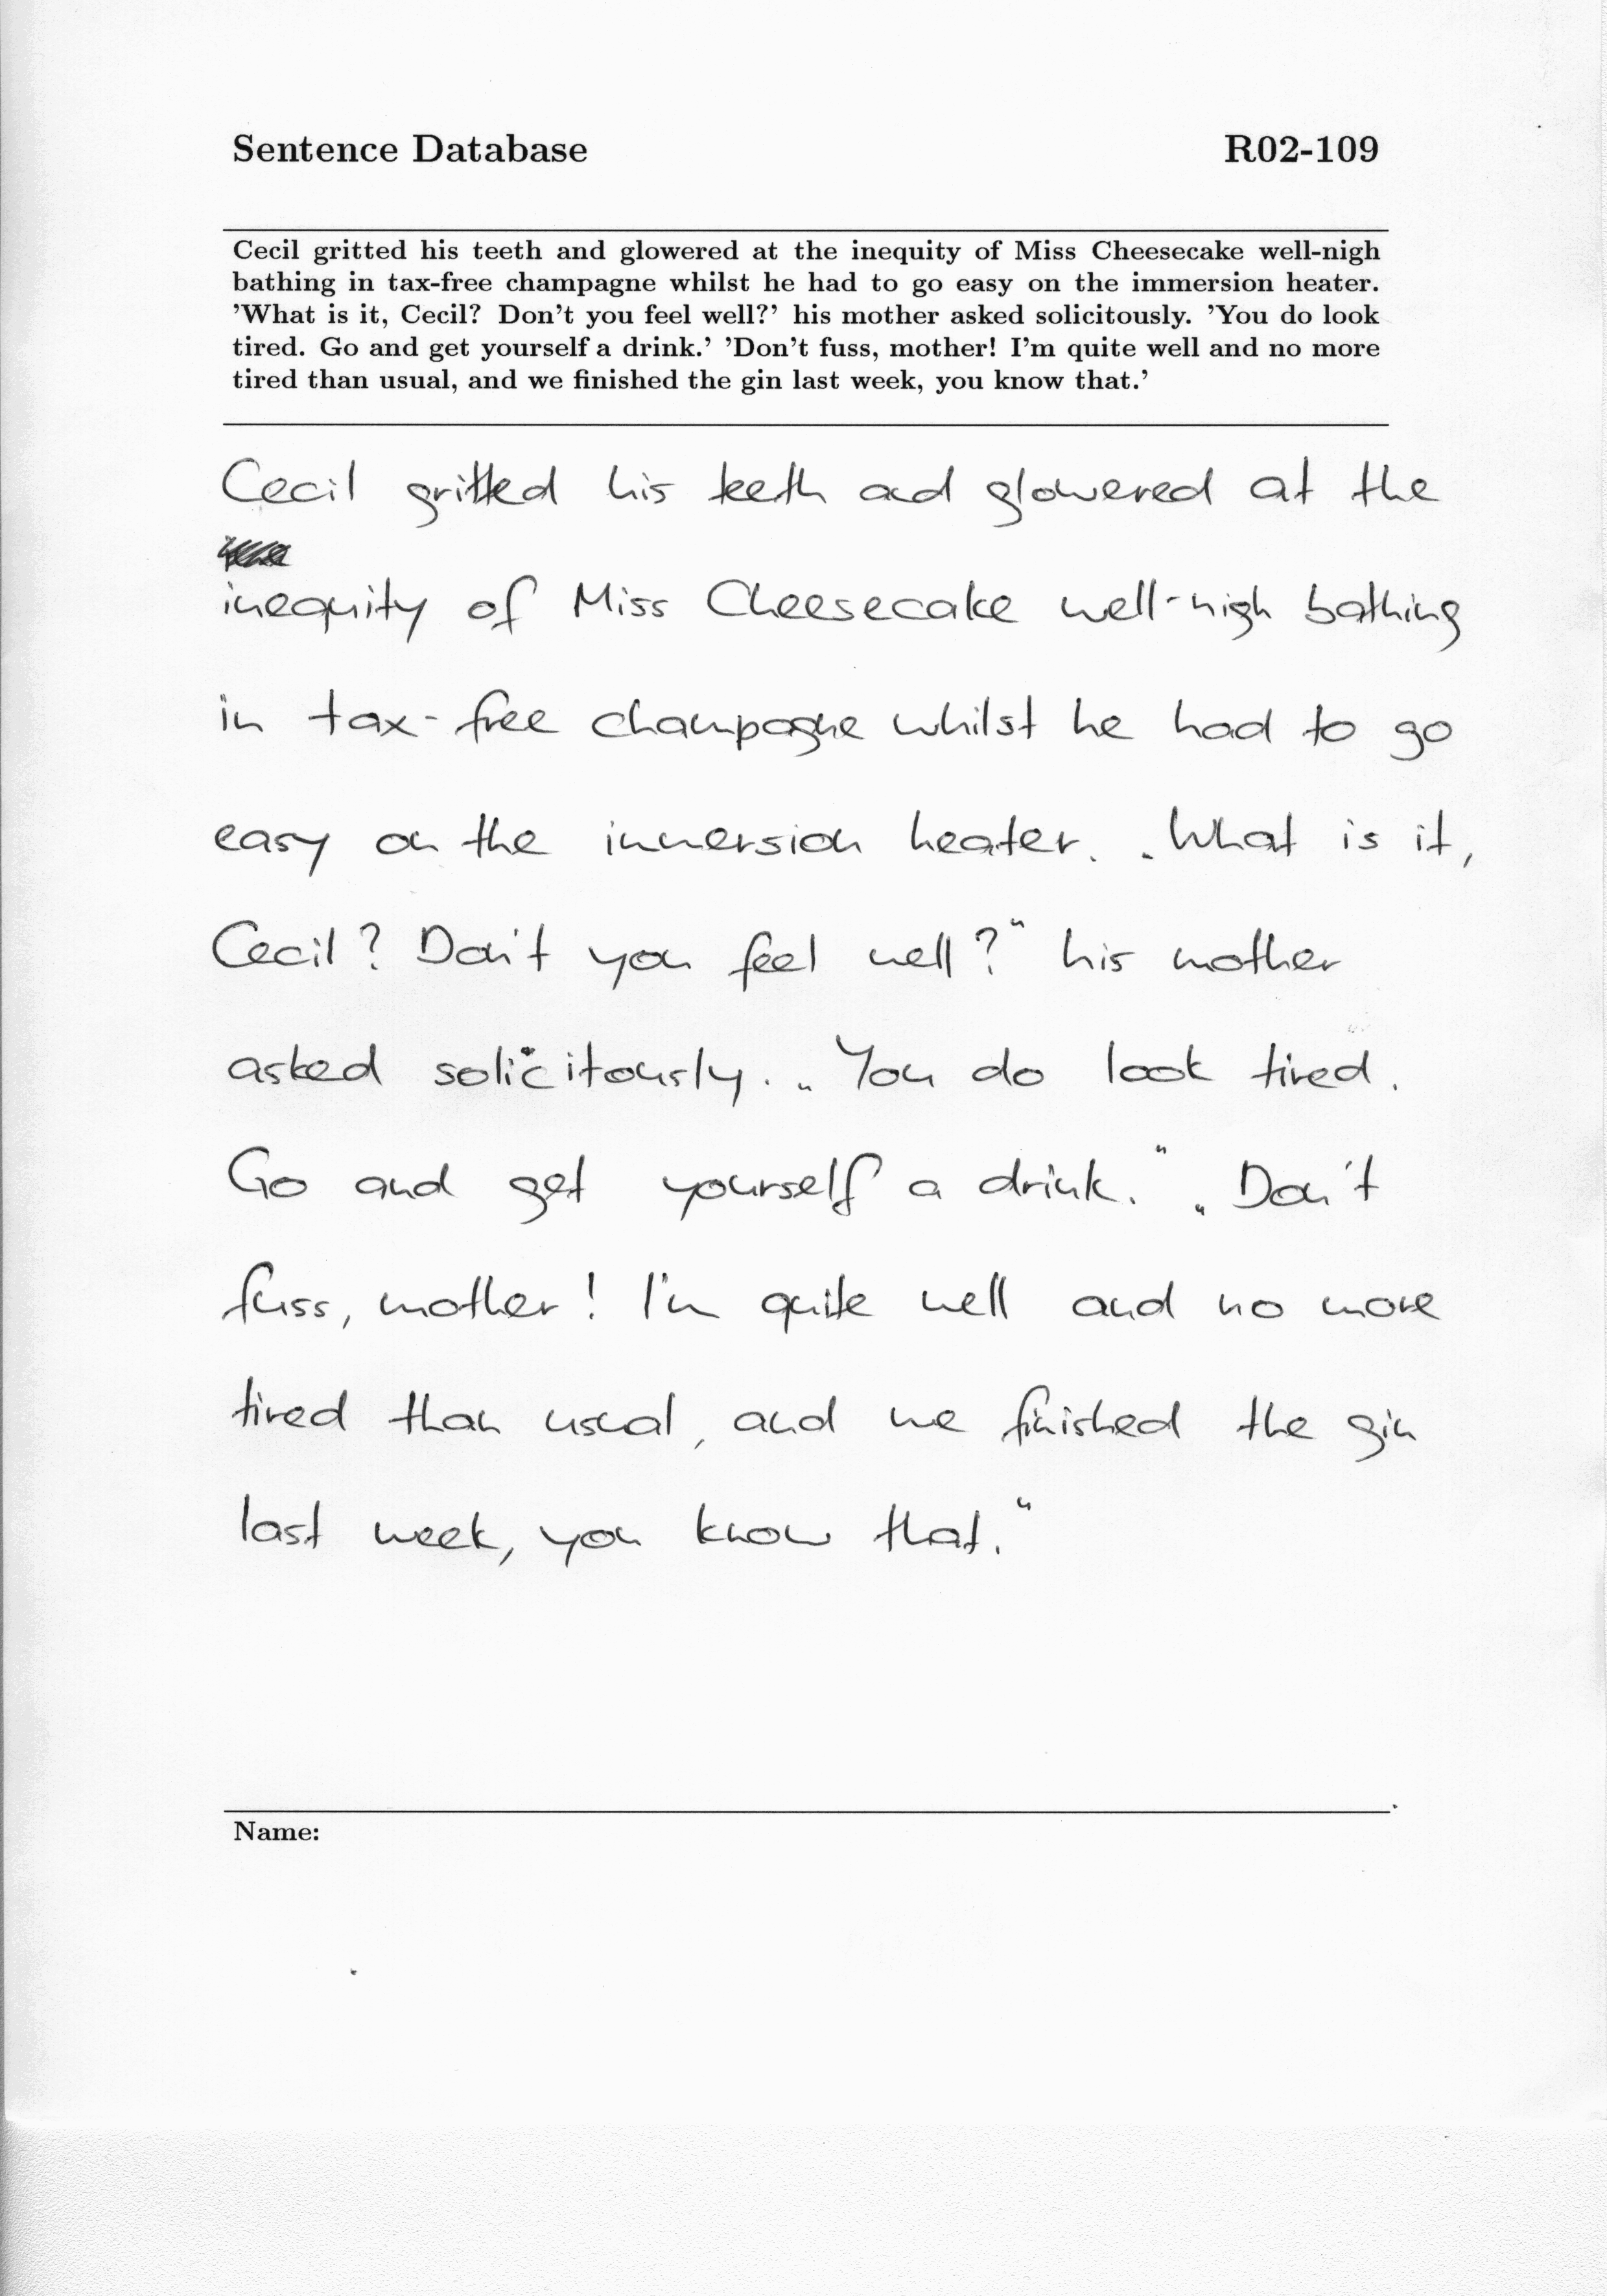 Sentence Database R02-109
Cecil gritted his teeth and glowered at the inequity of Miss Cheesecake well-nigh
bathing in tax-free champagne whilst he had to go easy on the immersion heater.
'What is it, Cecil? Don't you feel well?' his mother asked solicitously. 'You do look
tired. Go and get yourself a drink.' 'Don't fuss, mother! I'm quite well and no more
tired than usual, and we finished the gin last week, you know that.'
Cecil gritted his teeth and glowered at the
inequity of Miss Cheesecake well-nigh bathing
in tax-free champagne whilst he had to go
easy on the immersion heater. „What is it,
Cecil? Don't you feel well?" his mother
asked solicitously. „You do look tired.
Go and get yourself a drink." „Don't
fuss, mother! I'm quite well and no more
tired than usual, and we finished the gin
last week, you know that."
Name: